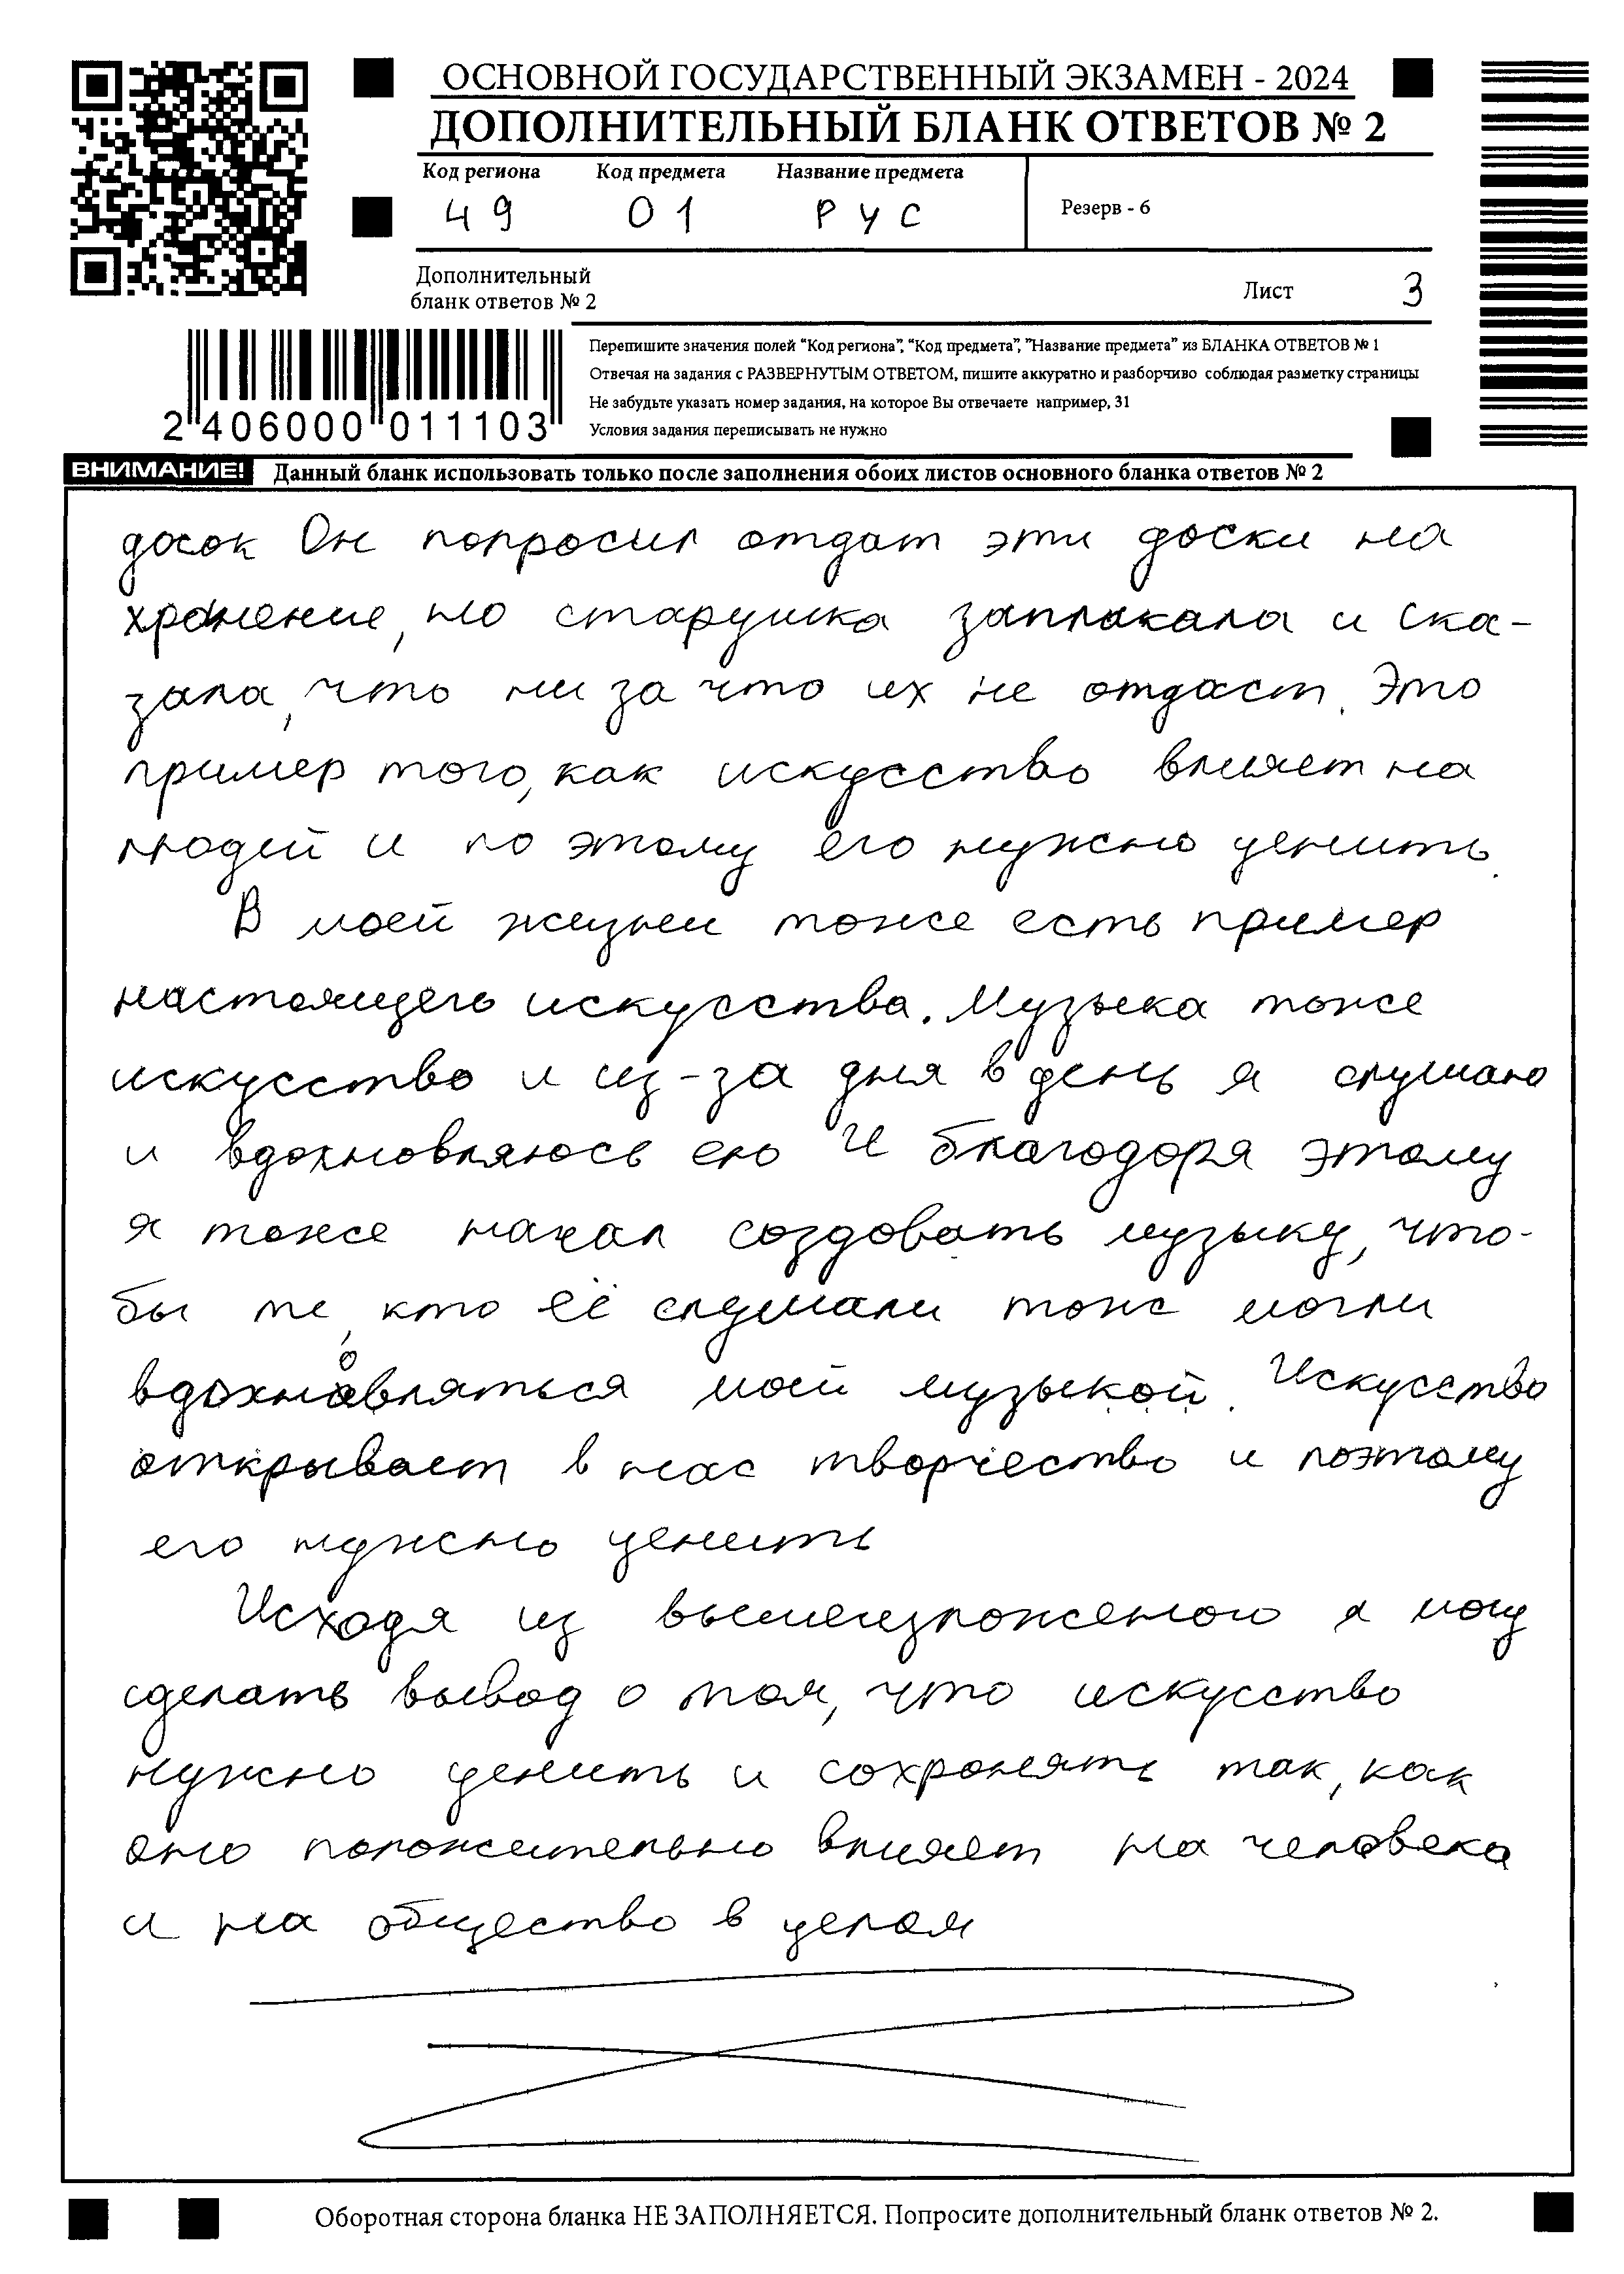 ОСНОВНОЙ ГОСУДАРСТВЕННЫЙ ЭКЗАМЕН - 2024
ДОПОЛНИТЕЛЬНЫЙ БЛАНК ОТВЕТОВ № 2
Код региона Код предмета Название предмета
49 01 РУС Резерв - 6
Дополнительный
бланк ответов № 2
Лист 3
Перепишите значения полей "Код региона", "Код предмета", "Название предмета" из БЛАНКА ОТВЕТОВ № 1
Отвечая на задания с РАЗВЕРНУТЫМ ОТВЕТОМ, пишите аккуратно и разборчиво соблюдая разметку страницы
Не забудьте указать номер задания, на которое Вы отвечаете например, 31
Условия задания переписывать не нужно
2406000 011103
ВНИМАНИЕ! Данный бланк использовать только после заполнения обоих листов основного бланка ответов № 2
досок Он попросил отдат эти доски на
хранение, но старушка заплакала и ска-
зала, что ни за что их не отдаст. Это
пример того, как искусство влияет на
людей и по этому его нужно ценить.
В моей жизни тоже есть пример
настоящего искусства. Музыка тоже
искусство и из-за дня в день я слушаю
и вдохновляюсь ею И благодоря этому
я тоже начал создовать музыку, что-
бы те, кто её слушали тоже могли
вдохновляться моей музыкой. Искусство
открывает в нас творчество и поэтому
его нужно ценить
Исходя из вышеизложеного я могу
сделать вывод о том, что искусство
нужно ценить и сохронять так, как
оно положительно влияет на человека
и на общество в целом
Оборотная сторона бланка НЕ ЗАПОЛНЯЕТСЯ. Попросите дополнительный бланк ответов № 2.